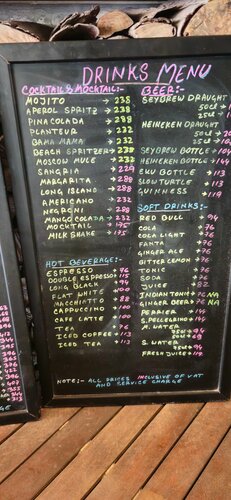 DRINKS MENU
COCKTAIL & MOCKTAIL:-
MOJITO → 238
APEROL SPRITZ → 238
PINA COLADA → 288
PLANTEUR → 232
BAMA MAMA → 232
BEACH SPRITZER → 232
MOSCOW MULE → 232
SANGRIA → 229
MARGARITA → 288
LONG ISLAND → 288
AMERICANO → 232
NEGRONI → 288
MANGO COLADA → 232
MOCKTAIL → 195
MILK SHAKE → 135
HOT BEVERAGE:-
ESPRESSO → 76
DOUBLE ESPRESSO → 115
LONG BLACK → 94
FLAT WHITE → 100
MACCHIATO → 88
CAPPUCCINO → 100
CAFE LATTE → 100
TEA → 76
ICED COFFEE → 113
ICED TEA → 113
BEER:-
SEYBREW DRAUGHT
50cl
25cl
HEINEKEN DRAUGHT
50cl
25cl
SEYBREW BOTTLE
HEINEKEN BOTTLE → 144
EKU BOTTLE → 113
SLOW TURTLE → 113
GUINNESS → 119
SOFT DRINKS:-
RED BULL → 94
COLA → 76
COLA LIGHT → 76
FANTA → 76
GINGER ALE → 76
BITTER LEMON → 76
TONIC → 76
SODA → 76
JUICE → 82
INDIAN TONIC → 76 NA
GINGER BEER → 76 NA
PERRIER → 144
S.PELLEGRINO → 144
M. WATER
50cl → 69
S. WATER
FRESH JUICE → 119
NOTE:- ALL PRICES INCLUSIVE OF VAT
AND SERVICE CHARGE